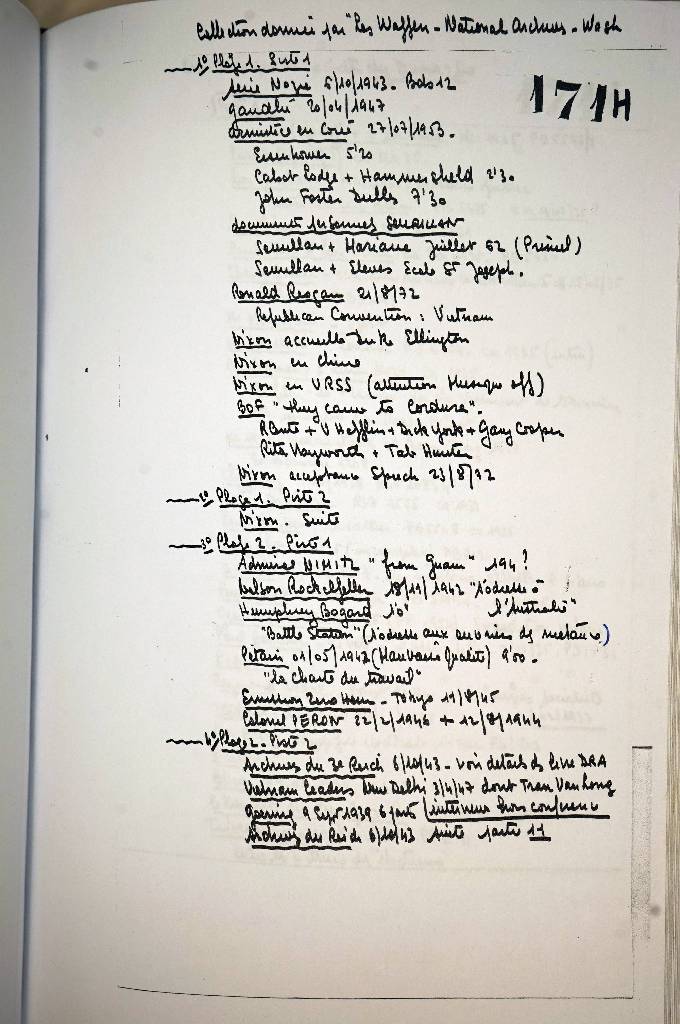 Collection donnée par "Les Waffen - National Archives - Wash
1° Plage 1. Piste 1
171H
Série Nazie 6/10/1943. Bob 12
gandhi 20/04/1947
armistice en Corée 27/07/1953.
Eisenhower 5'20
Cabot Lodge + Hammersheld 2'30
John Foster Dulles 7'30
documents personnels SENRILLAN
Senrillan + Mariane Juillet 62 (Prineel)
Senrillan + Eleves Ecole St Joseph.
Ronald Reagan 21/8/72
Republican Convention : Vietnam
Nixon accueille Duke Ellington
Nixon en Chine
Nixon en VRSS (attention Musique off)
BOF "they came to Cordura".
+ V Hefflin + Dick York + Gary Cooper
Rita Hayworth + Tab Hunter
Nixon acceptance Speech 23/8/72
2° Plage 1. Piste 2
Nixon. Suite
3° Plage 2. Piste 1
Admiral NIMITZ "from Guam" 194?
Nelson Rockefeller 18/11/1942 "s'adresse à
Humphrey Bogard 10' l'Australie"
"Battle Station" (s'adresse aux ouvriers de métaux)
Petain 01/05/1942 (Mauvaise Qualité) 9'00.
"la Charte du travail"
Emission Zero Hour - Tokyo 11/8/45
Colonel PERON 22/2/1946 + 12/8/1944
4° Plage 2. Piste 2
Archives du 3e Reich 6/10/43 - voir détails ds livre DRA
Vietnam leaders New Delhi 3/4/47 dont Tran Van
Goering 9 Sept 1939 6 parts
Archives du Reich 6/10/43 suite partie 11